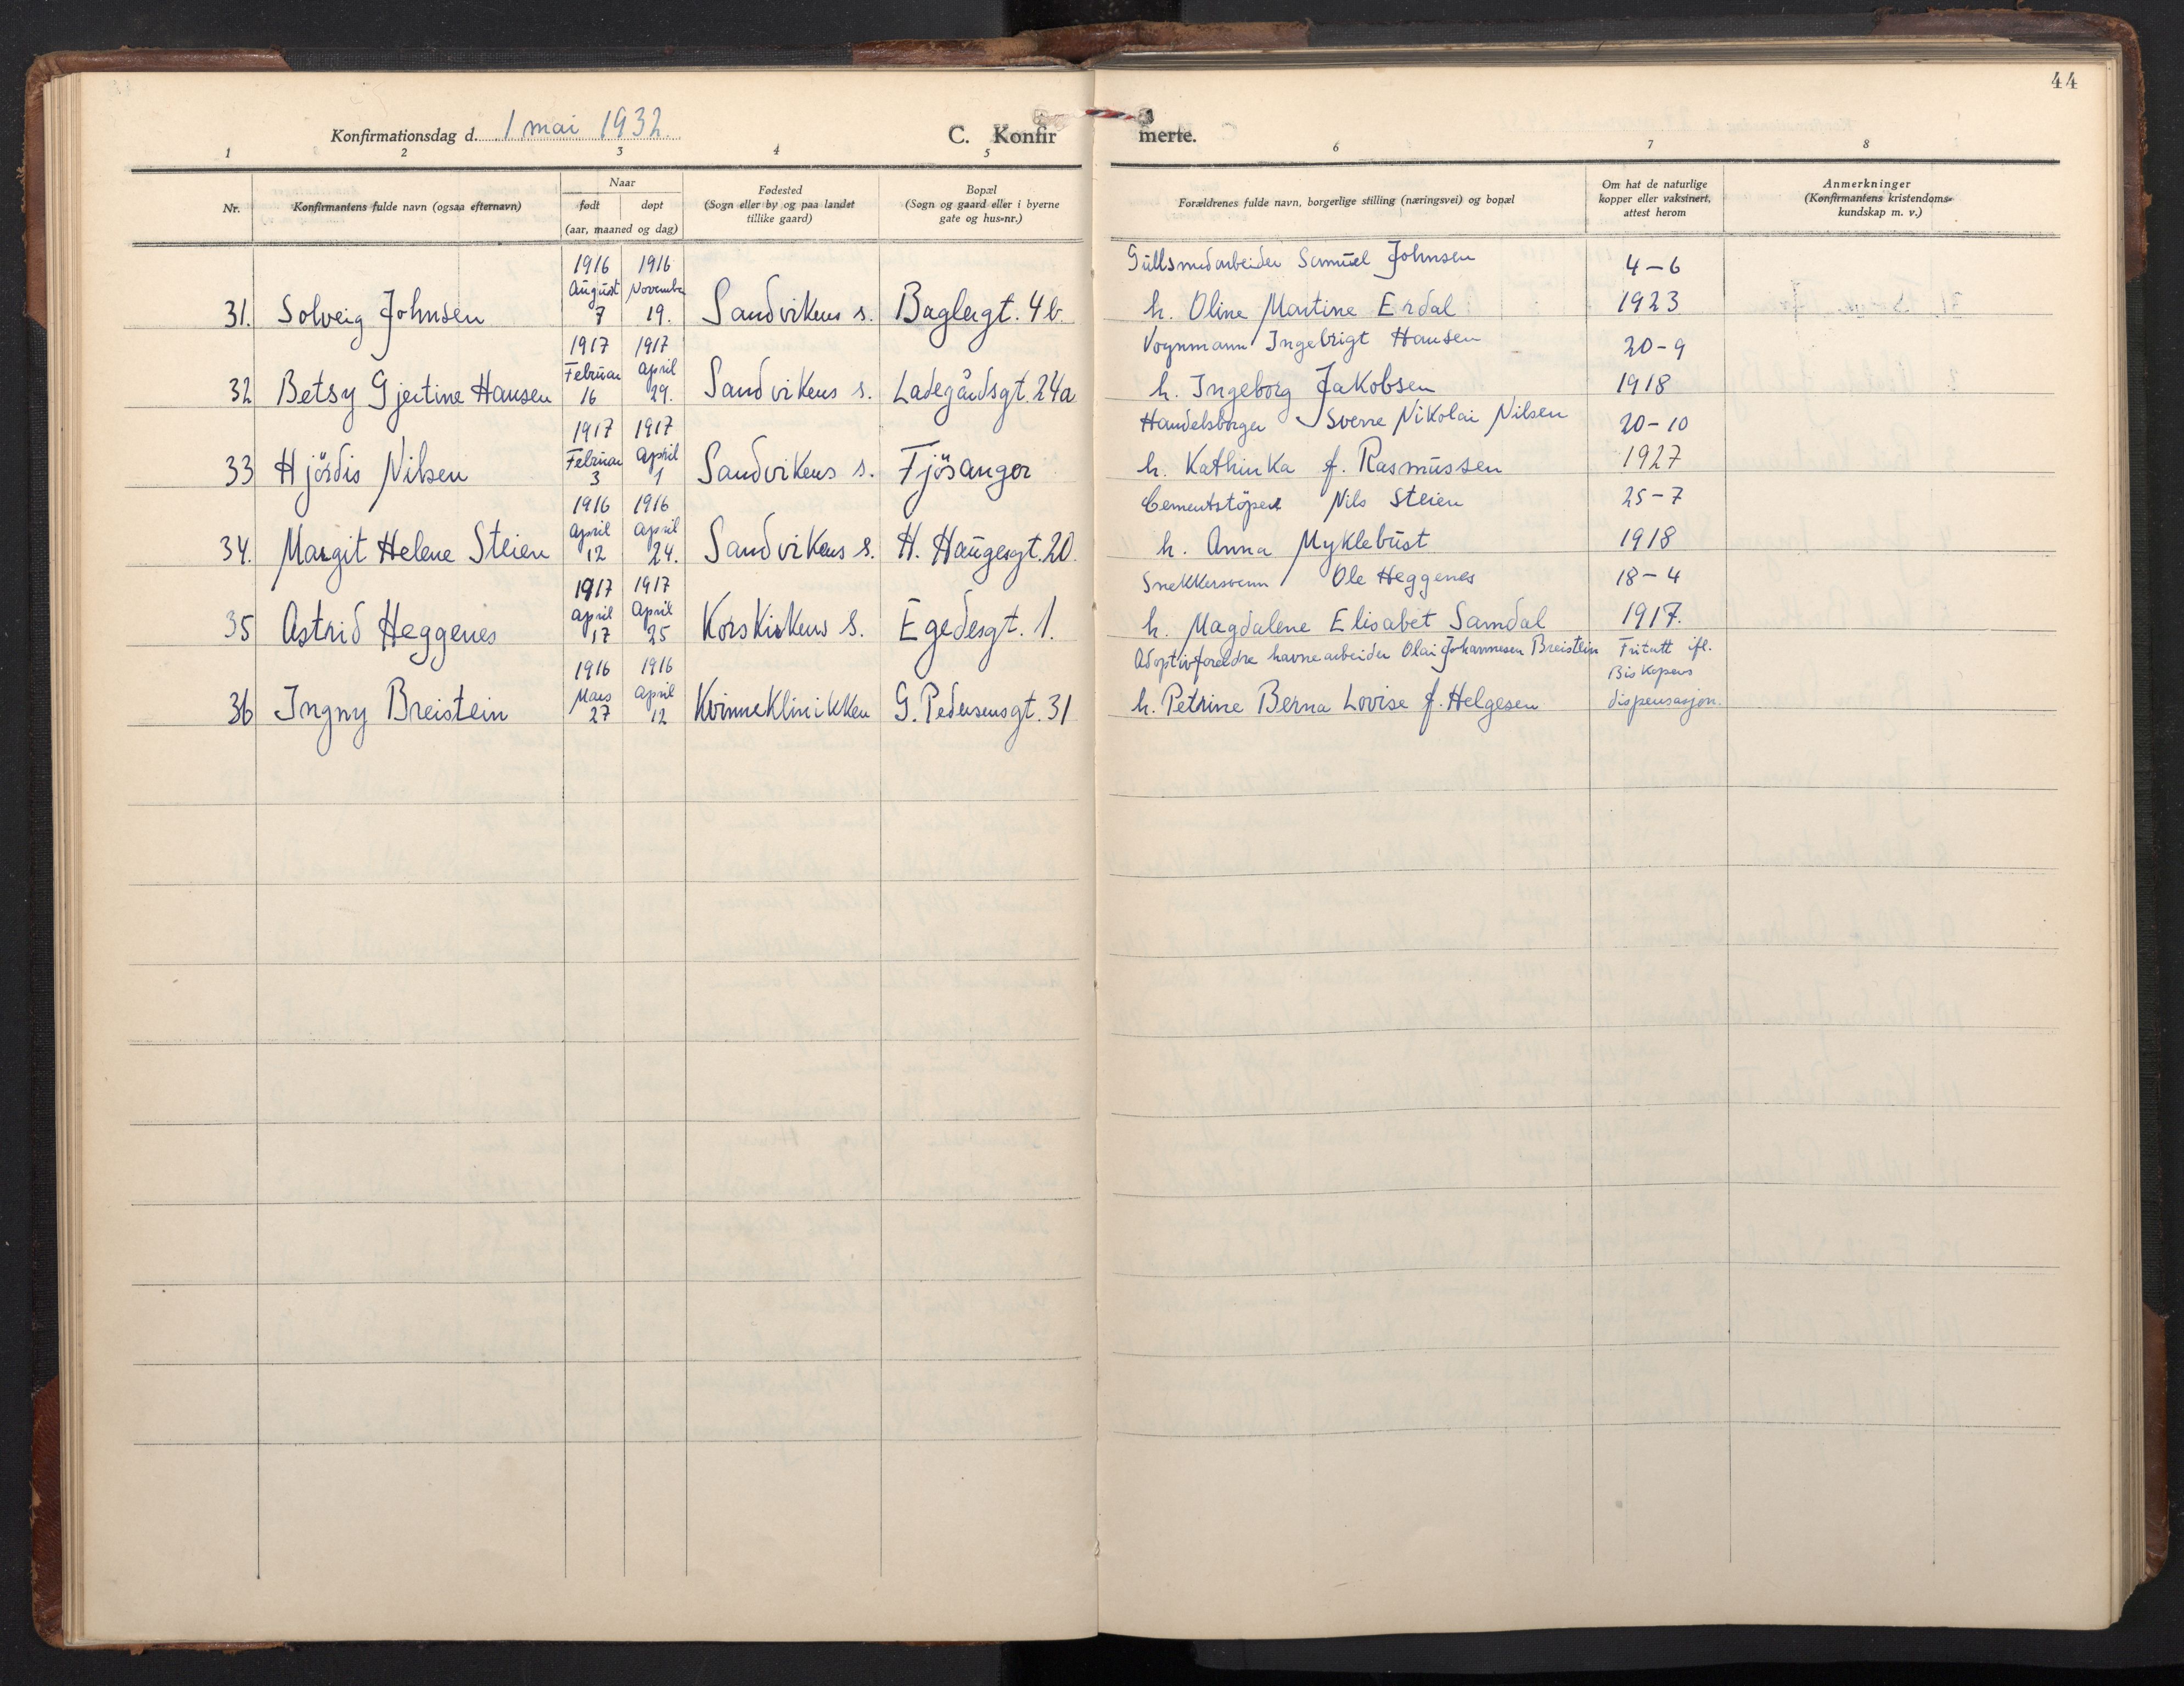 44
Konfirmationsdag d. 1 mai 1932.
C. Konfirmerte.
1 2 3 4 5 6 7 8
Nr.
Konfirmantens fulde navn (ogsaa efternavn)
Naar
født døpt
(aar, maaned og dag)
Fødested
(Sogn eller by og paa landet
tillike gaard)
Bopæl
(Sogn og gaard eller i byerne
gate og hus-nr.)
Forældrenes fulde navn, borgerlige stilling (næringsvei) og bopæl
Om hat de naturlige
kopper eller vaksinert,
attest herom
Anmerkninger
(Konfirmantens kristendoms-
kundskap m. v.)
1916 1916 Gullsmedarbeider Samuel Johnsen 4-6
August November
31. Solveig Johnsen 7 19. Sandvikens s. Baglergt. 4b. h. Oline Martine Erdal 1923
1917 1917 Vognmann Ingebrigt Hansen 20-9
Februar April
32 Betsy Gjertine Hansen 16 29. Sandvikens s. Ladegårdsgt. 24a h. Ingeborg Jakobsen 1918
1917 1917 Handelsborger Sverre Nikolai Nilsen 20-10
Februar April
33 Hjördis Nilsen 3 1 Sandvikens s. Fjösanger h. Kathinka f. Rasmussen 1927
1916 1916 Cementstöper Nils Steien 25-7
April April
34. Margit Helene Steien 12 24. Sandvikens s. H. Haugesgt. 20. h. Anna Myklebust 1918
1917 1917 Snekkersvenn Ole Heggenes 18-4
April April
35 Astrid Heggenes 17 25 Korskirkens s. Egedesgt. 1. h. Magdalene Elisabet Samdal 1917.
1916 1916 Adoptivforeldre havnearbeider Olai Johannesen Breistein Fritatt ifl.
Mars April Biskopens
36 Ingny Breistein 27 12 Kvinneklinikken G. Pedersensgt. 31 h. Petrine Berna Lovise f. Helgesen dispensasjon.